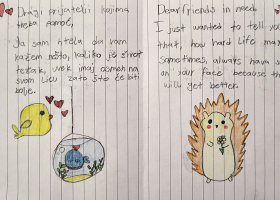 Dragi prijatelji kojima
treba pomoć,
Ja sam htela da vam
kažem nešto, koliko je život
težak, uvek imaj osmeh na
svom licu zato što će biti
bolje.
Dear friends in need,
I just wanted to tell you
that, how hard life ma
Sometimes, always have s
on your face because th
will get better.